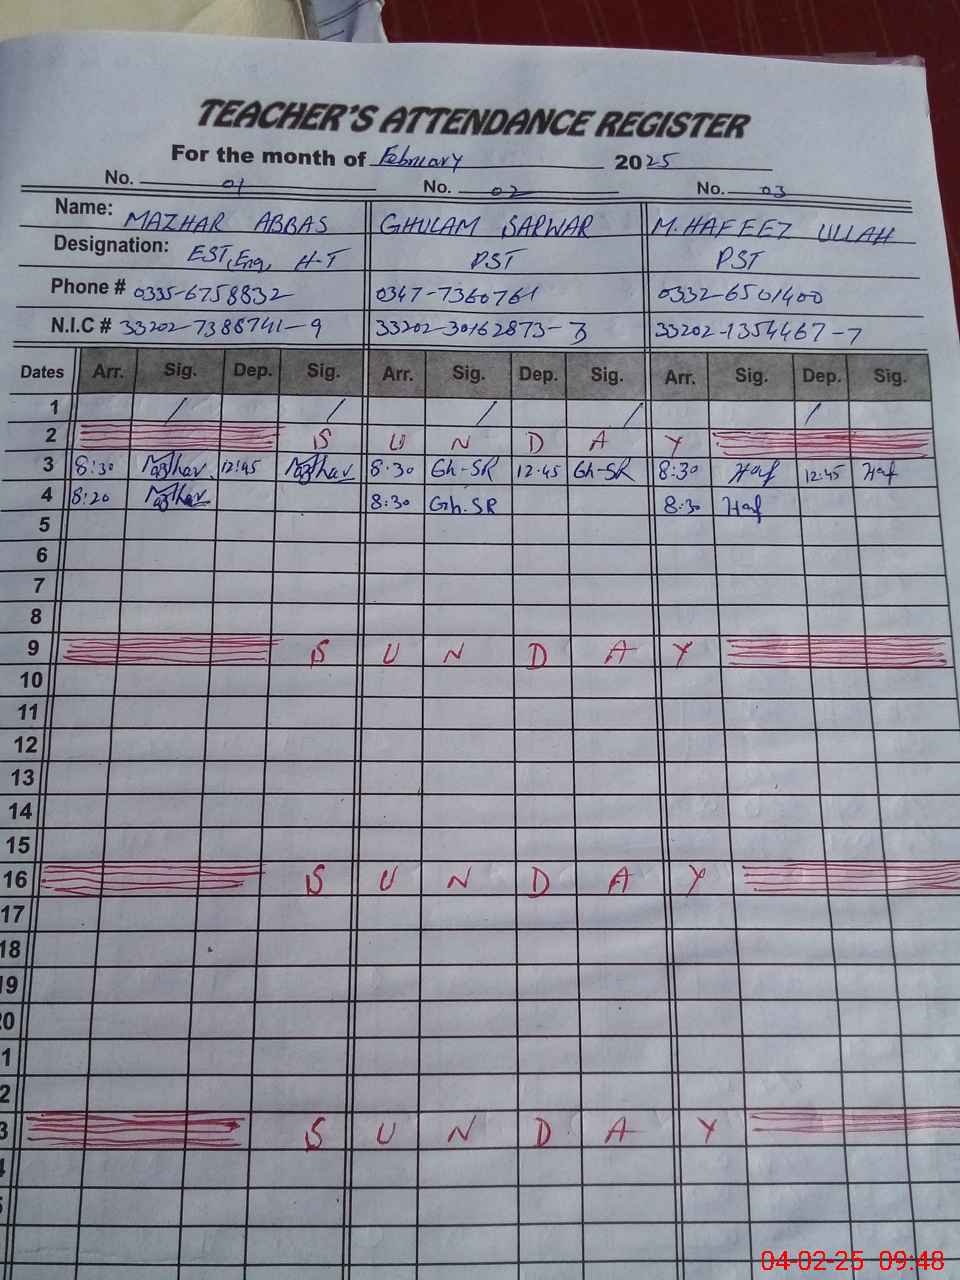 TEACHER'S ATTENDANCE REGISTER
For the month of February 2025
No. 01 No. 02 No. 03
Name: MAZHAR ABBAS GHULAM SARWAR M. HAFEEZ ULLAH
Designation: EST, Eng, H-T PST PST
Phone # 0335-6758832 0347-7360761 0332-6501400
N.I.C # 33202-7388741-9 33202-30162873-3 33202-1354467-7
Dates Arr. Sig. Dep. Sig. Arr. Sig. Dep. Sig. Arr. Sig. Dep. Sig.
1 / / / / /
2 S U N D A Y
3 8:30 Mazhar 12:45 Mazhar 8:30 Gh-SR 12:45 Gh-SR 8:30 Haf 12:45 Haf
4 8:20 Mazhar 8:30 Gh.SR 8:30 Haf
5
6
7
8
9 S U N D A Y
10
11
12
13
14
15
16 S U N D A Y
17
18
19
20
1
2
3 S U N D A Y
4
5
04-02-25 09:48